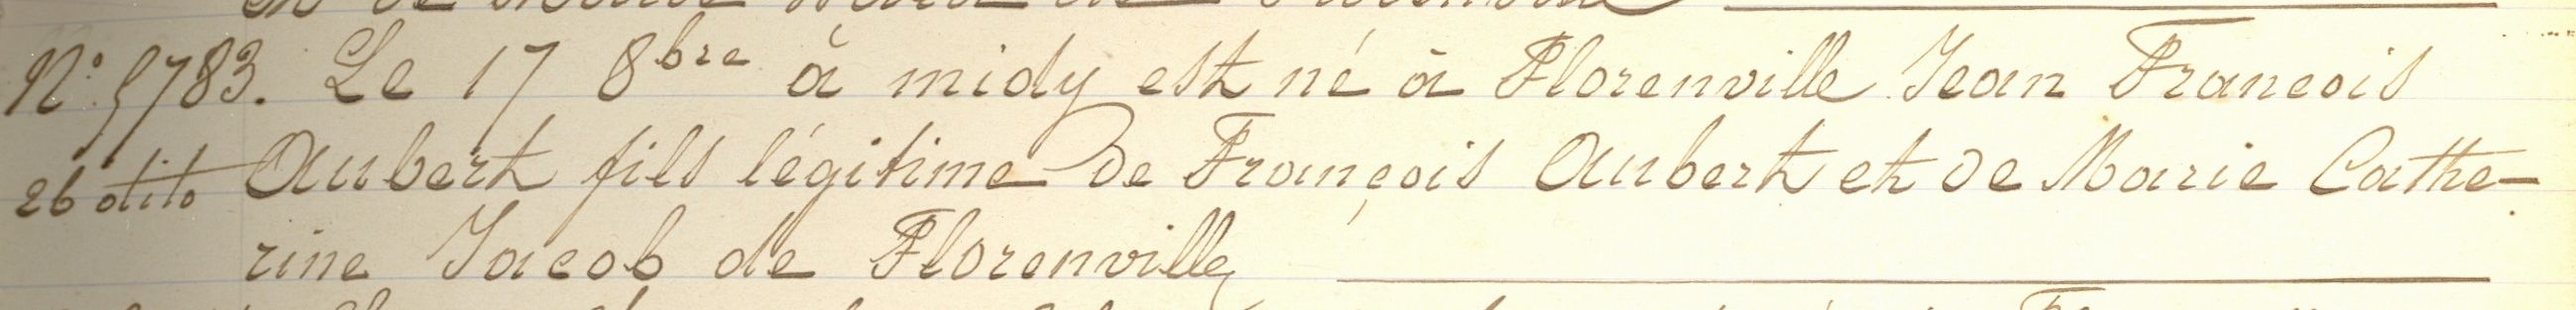 N° 5783. Le 17 8bre à midy est né à Florenville Jean Francois
26 dito Aubert fils légitime de François Aubert et de Marie Cathe-
rine Jacob de Florenville